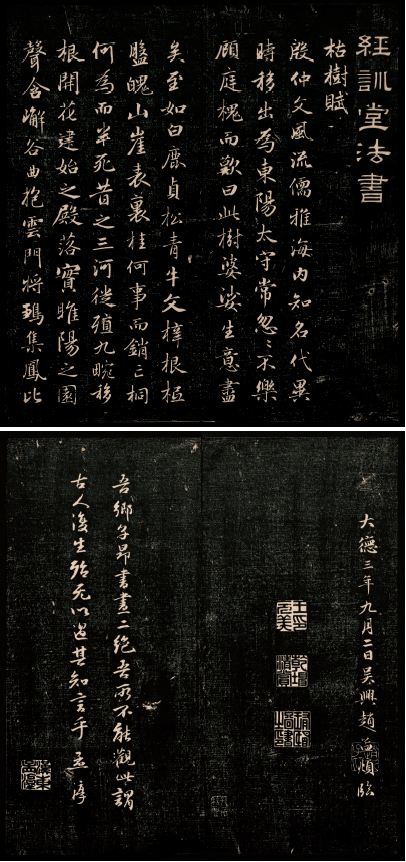 經訓堂法書
枯樹賦
殷仲文風流儒雅海内知名代異
時移出為東陽太守常忽〻不樂
顧庭槐而歎曰此樹婆娑生意盡
矣至如白鹿貞松青牛文梓根柢
盤魄山崖表裏桂何事而銷亡桐
何為而半死昔之三河徙殖九畹移
根開花建始之殿落實睢陽之園
聲含嶰谷曲抱雲門將鶵集鳳比
大德三年九月二日吴興趙孟頫臨
吾鄉子昂書畫二絶吾所不能觀此謂
古人復生殆无以過其知言乎 孟淳